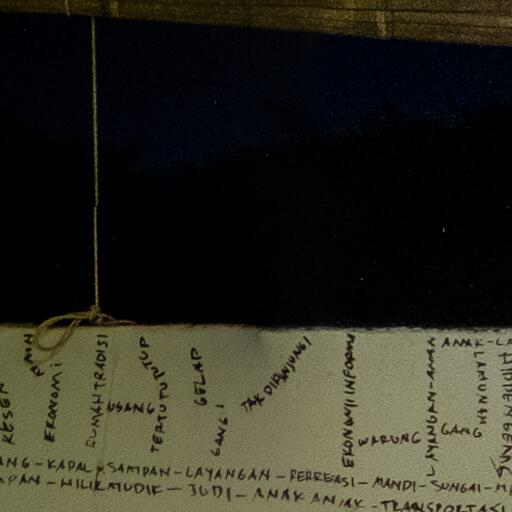 KESEN
EKONOMI
RUMAH TRADISI
USANG
TERTUTUTUP
GELAP
GANG
TAK DIKUNJUNGI
EKONOMI INFORM
WARUNG
LAYANGAN-ANAK
GANG
ANAK-LA
LAMUNAN
ANG-KAPAL-SAMPAN-LAYANGAN-REKREASI-MANDI-SUNGAI-M
APAN-HILIR MUDIK-JUDI-ANAK ANAK-TRANSPORTASI